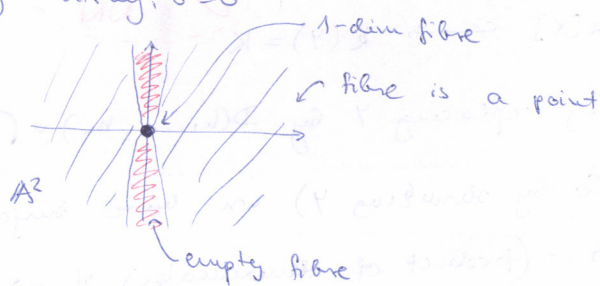 1-dim fibre
fibre is a point
𝔸²
empty fibre